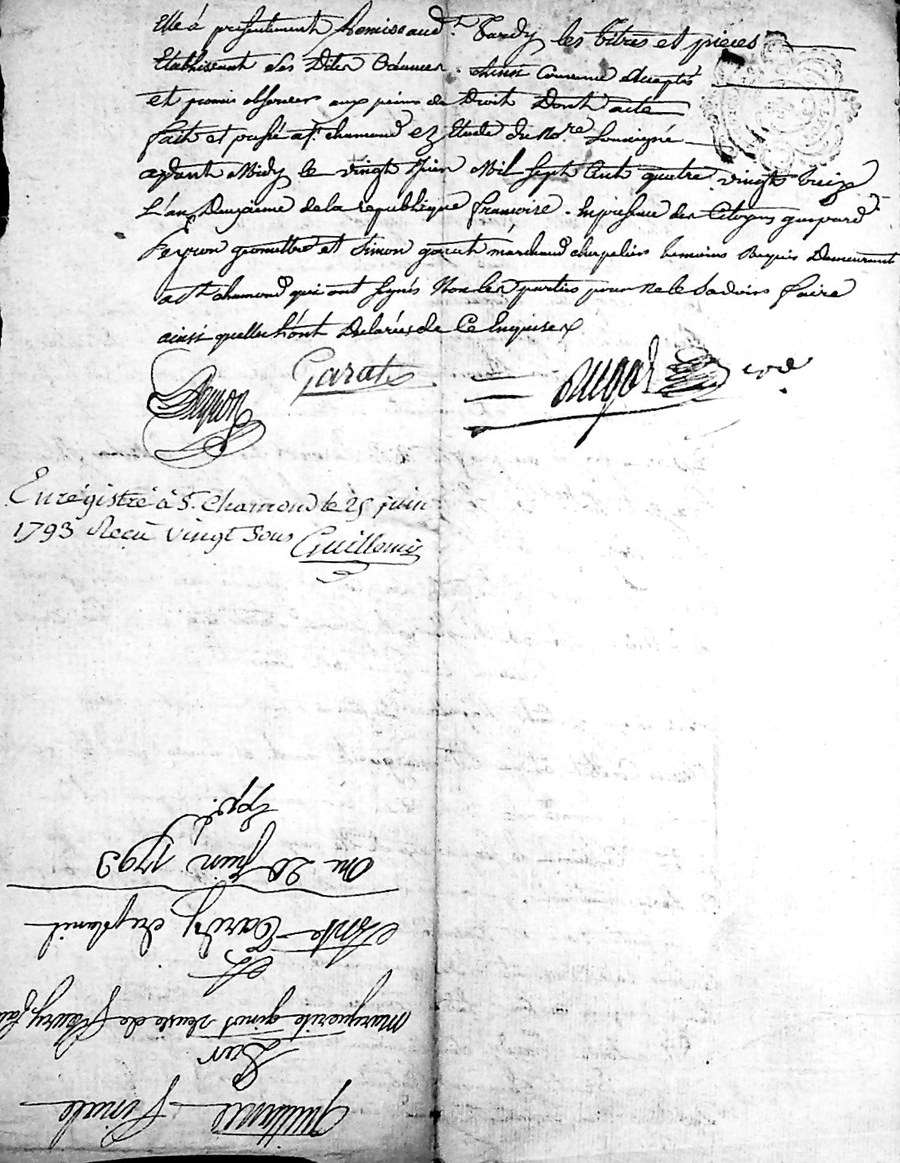 Elle à présentement Remise aud.t Tardy les titres et pieces
Etablissant les Dites Créances. Ainsi Convenu accepté
et promis observer aux peines de Droit Dont acte
fait et passé a St chamond Etude du No.re Soussigné
avant Midy le vingt Juin Mil Sept Cent quatre vingt treize
L'an Deuxieme de la republique françoise. En presence des Citoyens gaspard
Peyron geomettre et Simon garat marchand chapelier temoins Requis Demeurant
a St chamond qui ont signés Non les parties pour ne le Savoir faire
ainsi qu'elles l'ont Declarées de Ce Enquises
Peyron Garat
Enrégistré à St. Chamond le 25 juin
1793 Reçu vingt sous Guillemin
Quittance finale
Par
Marguerite ginot veuve de fleury
A
Ante Tardy
Du 20 Juin 1793
Exp.d